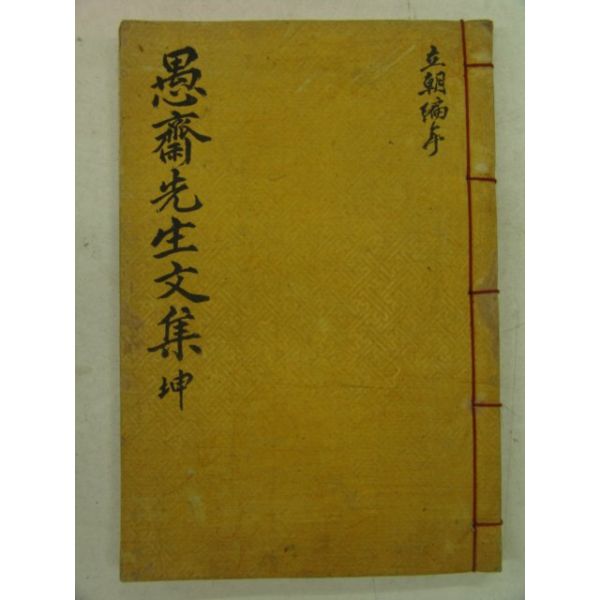 立朝編年
愚齋先生文集 坤